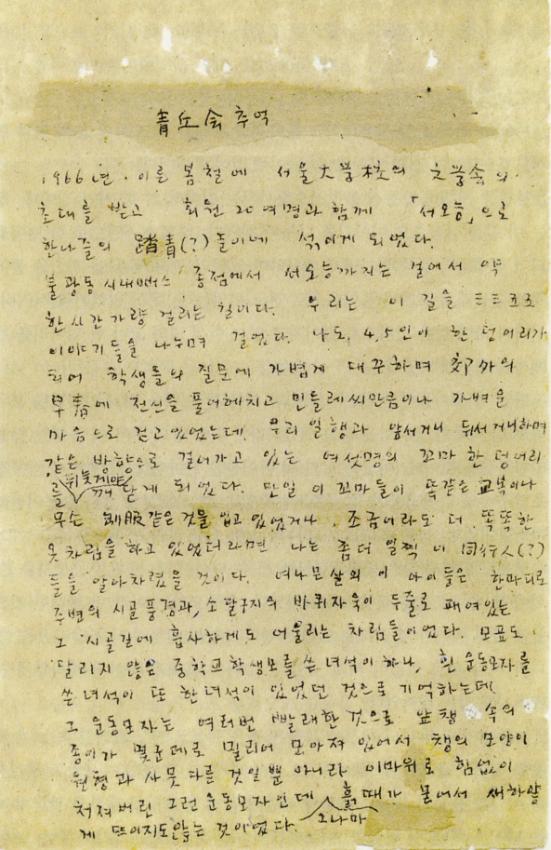 靑丘会 추억
1966년. 이른 봄철에 서울大学校의 文学会의
초대를 받고 회원 20여명과 함께 「서오능」으로
한나절의 踏青(?)놀이에 섞이게 되었다.
불광동 시내뻐스 종점에서 서오능까지는 걸어서 약
한시간 가량 걸리는 길이다. 우리는 이 길을 三三五五
이야기들을 나누며 걸었다. 나도, 4,5인이 한 덩어리가
되어 학생들의 질문에 가볍게 대꾸하며 郊外의
早春에 전신을 풀어헤치고 민들레씨만큼이나 가벼운
마음으로 걷고 있었는데, 우리 일행과 앞서거니 뒤서거니하며
같은 방향으로 걸어가고 있는 여섯명의 꼬마 한 덩어리
를 뒤늦게야 깨닫게 되었다. 만일 이 꼬마들이 똑같은 교복이나
무슨 制服같은 것을 입고 있었거나, 조금이라도 더 똑똑한
옷차림을 하고 있었더라면 나는 좀더 일찍 이 同行人(?)
들을 알아차렸을 것이다. 여나믄살의 이 아이들은 한마디로
주변의 시골풍경과, 소달구지의 바퀴자욱이 두줄로 패여있는
그 시골길에 흡사하게도 어울리는 차림들이었다. 모표도
달리지 않은 중학교학생모를 쓴 녀석이 하나, 흰 운동모자를
쓴 녀석이 또 한녀석이 있었던 것으로 기억하는데,
그 운동모자는 여러번 빨래한 것으로 앞챙 속의
종이가 몇군데로 밀리어 모아져 있어서 챙의 모양이
원형과 사뭇 다른 것일 뿐 아니라 이마위로 힘없이
처져버린 그런 운동모자인데 흙때가 묻어서 새하얗
게 뜨이지도않는 것이었다. 그나마